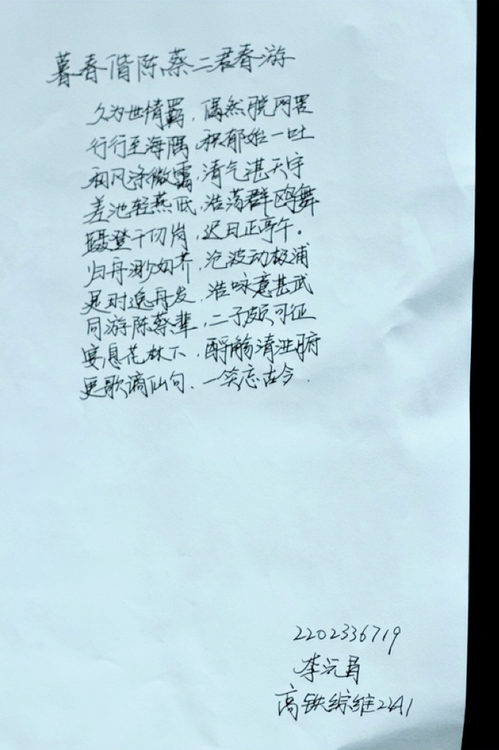 暮春偕陈蔡二君春游
久为世情羁，偶然脱网罟
行行至海隅，积郁始一吐
和风涤微霭，清气湛天宇
差池轻燕低，浩荡群鸥舞
蹑登千仞岗，迟日正亭午。
归舟渺如芥，沧波动极浦
是时逸兴发，浩咏意甚武
同游陈蔡辈，二子颇可征
宴息花林下，酹觞清泚脯
更歌谪仙句，一笑忘古今.
2202336719
李沅
高铁综维2241